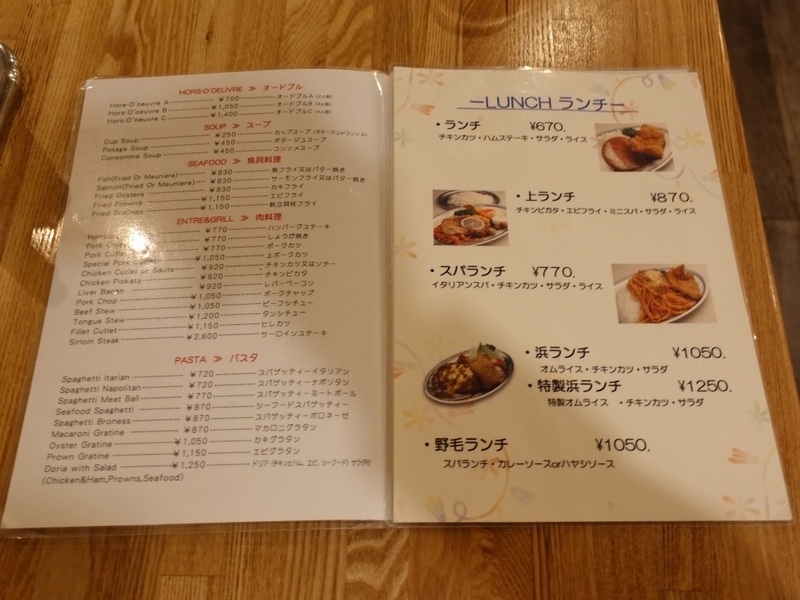 HORS-D'OEUVRE ≫ オードブル
Hors-D'oeuvre A ¥700 オードブルA (2人前)
Hors-D'oeuvre B ¥1,050 オードブルB (3人前)
Hors-D'oeuvre C ¥1,400 オードブルC (4人前)
SOUP ≫ スープ
Cup Soup ¥250 カップスープ (ポタージュorコンソメ)
Potage Soup ¥450 ポタージュスープ
Consomme Soup ¥450 コンソメスープ
SEAFOOD ≫ 魚貝料理
Fish(Fried Or Meuniere) ¥830 魚フライ又はバター焼き
Salmon(Fried Or Meuniere) ¥830 サーモンフライ又はバター焼き
Fried Oysters ¥830 カキフライ
Fried Prowns ¥1,150 エビフライ
Fried Scallops ¥1,150 帆立貝柱フライ
ENTRE&GRILL ≫ 肉料理
¥770 ハンバーグステーキ
Pork ¥770 しょうが焼き
Pork Cutlet ¥770 ポークカツ
Special Pork Cutlet ¥1,050 上ポークカツ
Chicken Cutlet or Saute ¥920 チキンカツ又はソテー
Chicken Pickata ¥920 チキンピカタ
Liver Bacon ¥920 レバーベーコン
Pork Chop ¥1,050 ポークチャップ
Beef Stew ¥1,050 ビーフシチュー
Tongue Stew ¥1,200 タンシチュー
Fillet Cutlet ¥1,150 ヒレカツ
Sirloin Steak ¥2,600 サーロインステーキ
PASTA ≫ パスタ
Spaghetti Itarian ¥720 スパゲッティーイタリアン
Spaghetti Napolitan ¥720 スパゲッティーナポリタン
Spaghetti Meat Ball ¥770 スパゲッティーミートボール
Seafood Spaghetti ¥870 シーフードスパゲッティー
Spaghetti Broness ¥870 スパゲッティーボロネーゼ
Macaroni Gratine ¥870 マカロニグラタン
Oyster Gratine ¥1,050 カキグラタン
Prown Gratine ¥1,150 エビグラタン
Doria with Salad ¥1,250 ドリア (チキンとハム、エビ、シーフード) サラダ付
(Chicken&Ham,Prowns,Seafood)
―LUNCH ランチ―
・ランチ ¥670.
チキンカツ・ハムステーキ・サラダ・ライス
・上ランチ ¥870.
チキンピカタ・エビフライ・ミニスパ・サラダ・ライス
・スパランチ ¥770.
イタリアンスパ・チキンカツ・サラダ・ライス
・浜ランチ ¥1050.
オムライス・チキンカツ・サラダ
・特製浜ランチ ¥1250.
特製オムライス ・チキンカツ・サラダ
・野毛ランチ ¥1050.
スパランチ・カレーソースorハヤシソース